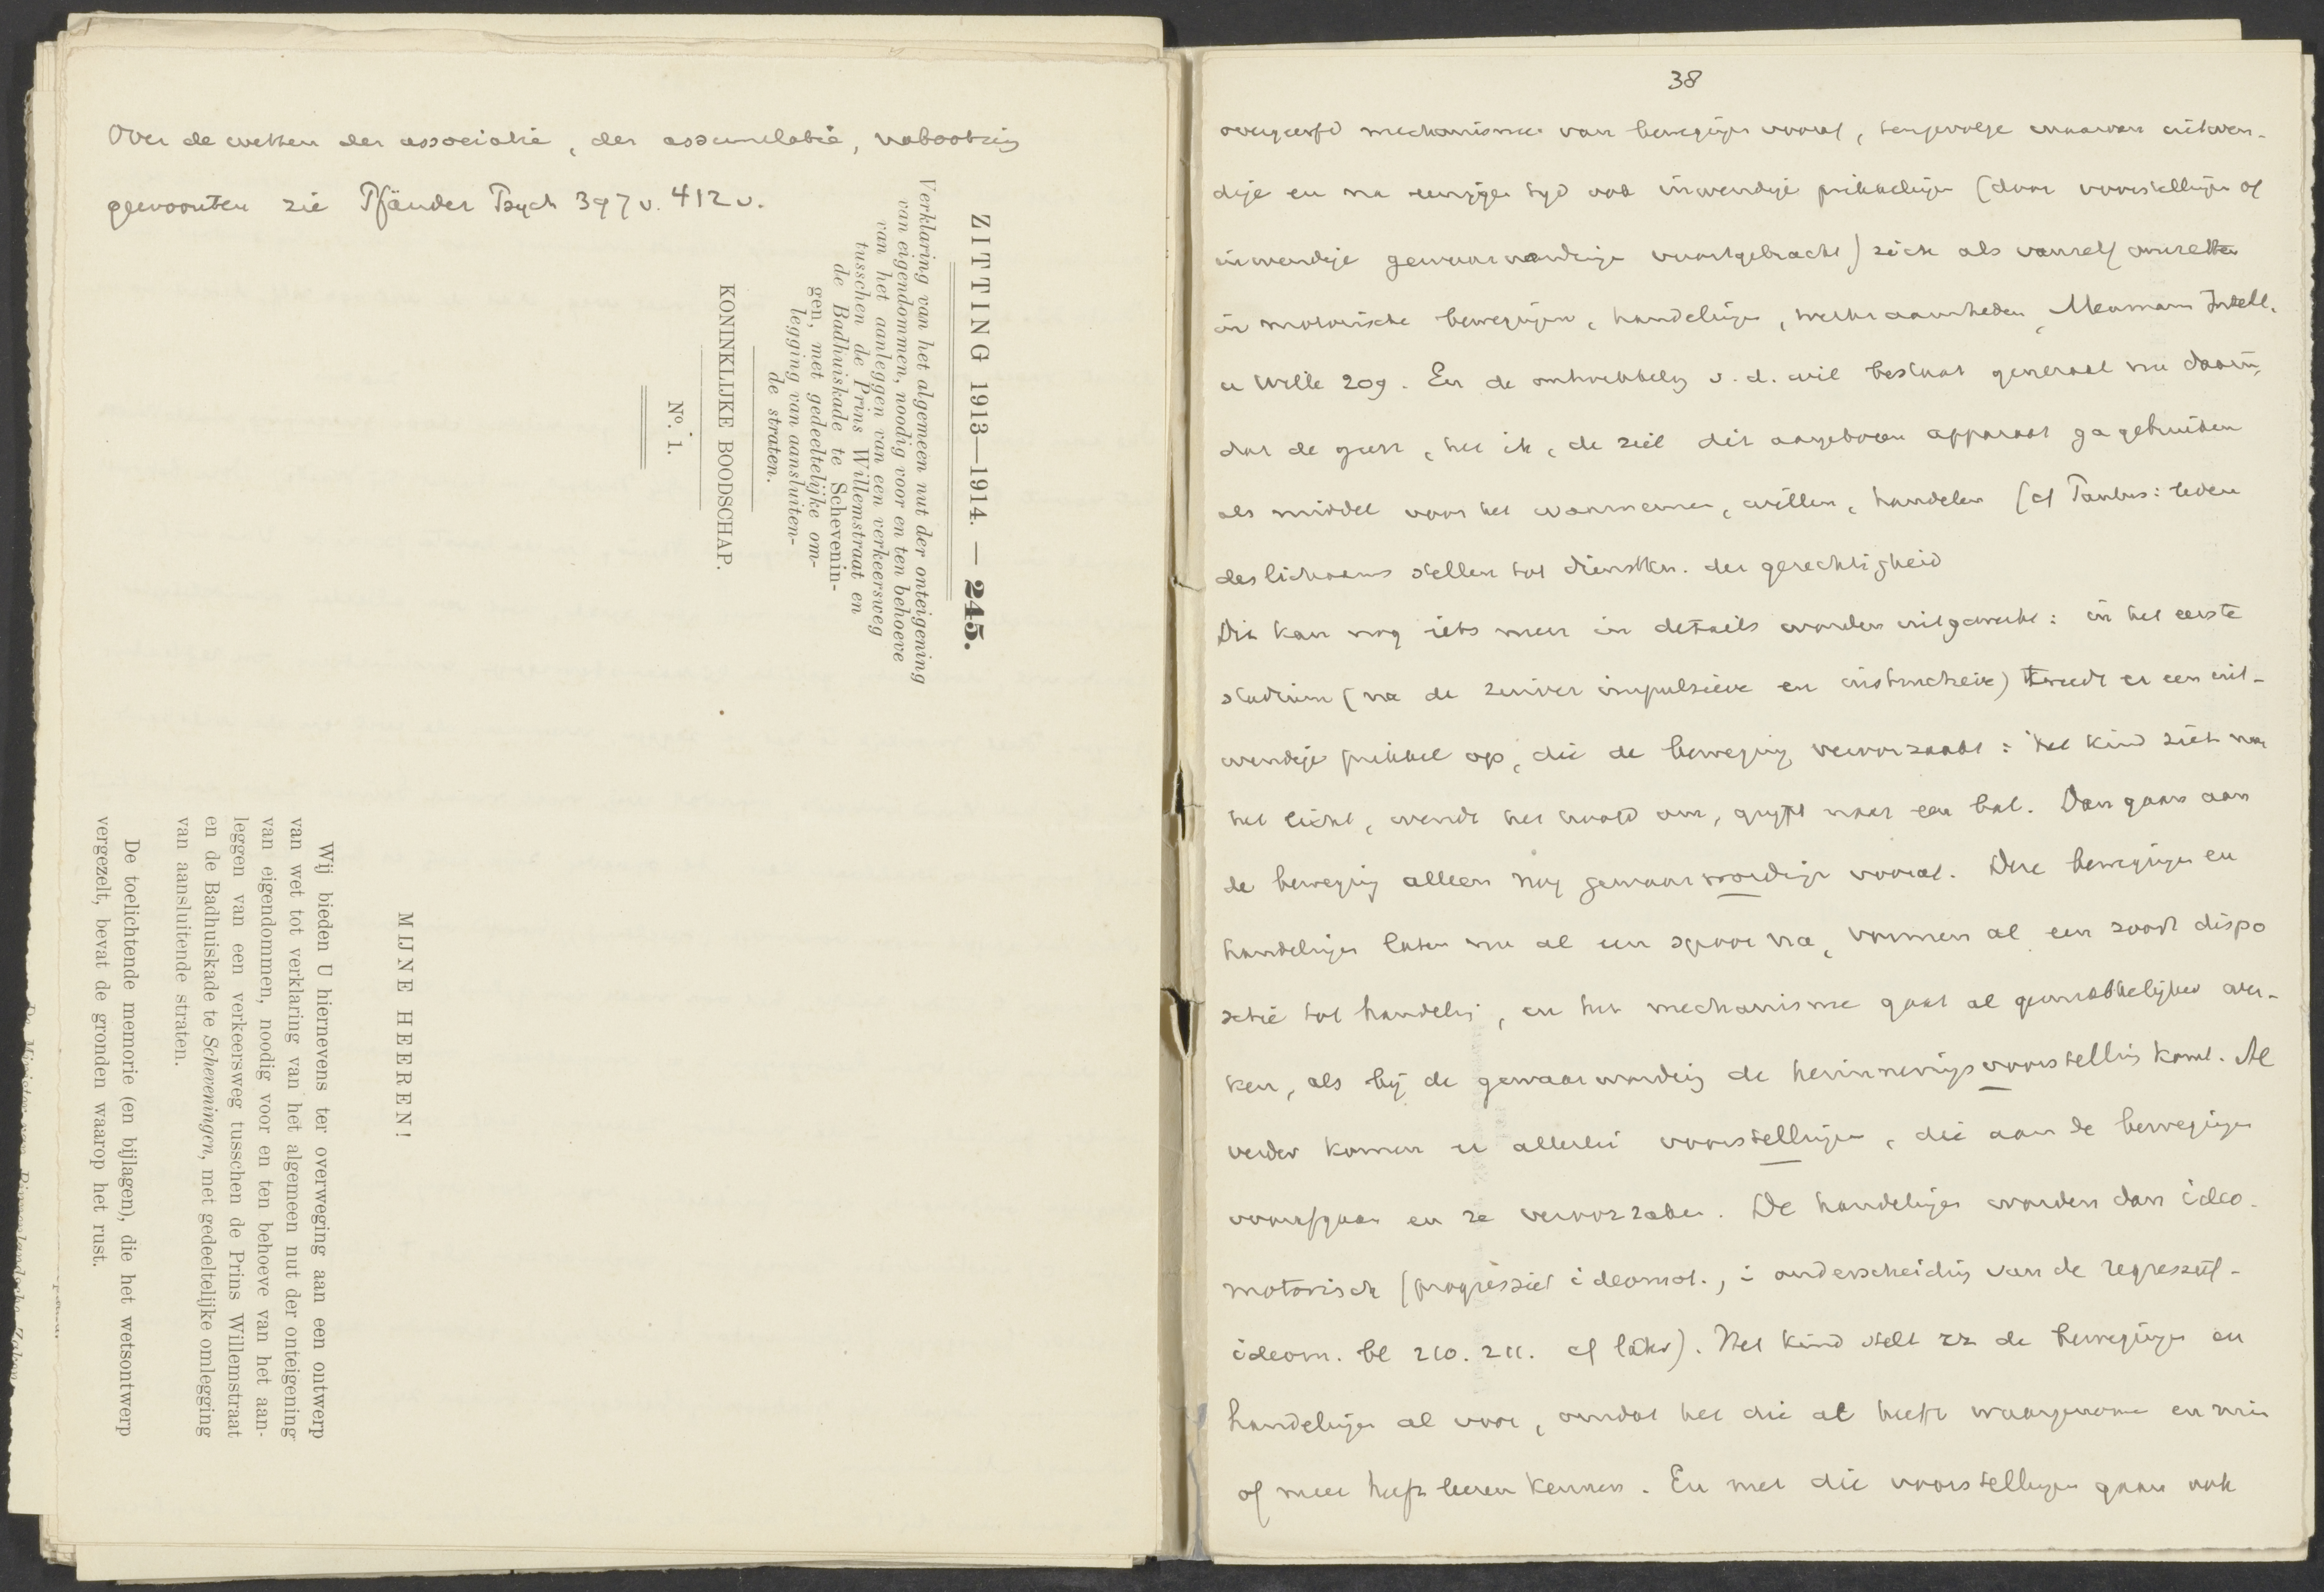 Over de wetten der associatie, der assimilatie, nabootsing
gewoonten zie Pfänder Psych 397v. 412v.
ZITTING 1913—1914. — 245.
Verklaring van het algemeen nut der onteigening
van eigendommen, noodig voor en ten behoeve
van het aanleggen van een verkeersweg
tusschen de Prins Willemstraat en
de Badhuiskade te Schevenin-
gen, met gedeeltelijke om-
legging van aansluiten-
de straten.
KONINKLIJKE BOODSCHAP.
No. 1.
MIJNE HEEREN!
Wij bieden U hiernevens ter overweging aan een ontwerp
van wet tot verklaring van het algemeen nut der onteigening
van eigendommen, noodig voor en ten behoeve van het aan-
leggen van een verkeersweg tusschen de Prins Willemstraat
en de Badhuiskade te Scheveningen, met gedeeltelijke omlegging
van aansluitende straten.
De toelichtende memorie (en bijlagen), die het wetsontwerp
vergezelt, bevat de gronden waarop het rust.
De Minister van Binnenlandsche Zaken,
38
overgeerfd mechanisme van bewegingen vooraf, tengevolge waarvan uitwen-
dige en na eenigen tyd ook inwendige prikkelingen (door voorstellingen of
inwendige gewaarwordingen voortgebracht) zich als vanzelf omzetten
in motorische bewegingen, handelingen, werkzaamheden, Meumann Intell.
u Wille 209. En de ontwikkeling v. d. wil bestaat generaal nu daarin,
dat de geest, het ik, de ziel dit aangeboren apparaat ga gebruiken
als middel voor het waarnemen, willen, handelen (cf Paulus: leden
des lichaams stellen tot dienstkn. der gerechtigheid
Dit kan nog iets meer in details worden uitgewerkt: in het eerste
stadium (na de zuiver impulsieve en instinctieve) treedt er een uit-
wendige prikkel op, die de beweging veroorzaakt: het kind ziet naar
het licht, wendt het hoofd om, grypt naar een bal. Dan gaan aan
de beweging alleen nog gewaarwordingen vooraf. Deze bewegingen en
handelingen laten nu al een spoor na, vormen al een soort dispo
sitie tot handeling, en het mechanisme gaat al gemakkelijker wer-
ken, als bij de gewaarwording de herinneringsvoorstelling komt. Al
verder komen er allerlei voorstellingen, die aan de bewegingen
voorafgaan en ze veroorzaken. De handelingen worden dan ideo-
motorisch (progressief ideomot., i onderscheiding van de regressief-
ideom. bl 210. 211. cf later). Het kind stelt zz de bewegingen en
handelingen al voor, omdat het die al heeft waargenomen en min
of meer heeft leeren kennen. En met die voorstellingen gaan ook